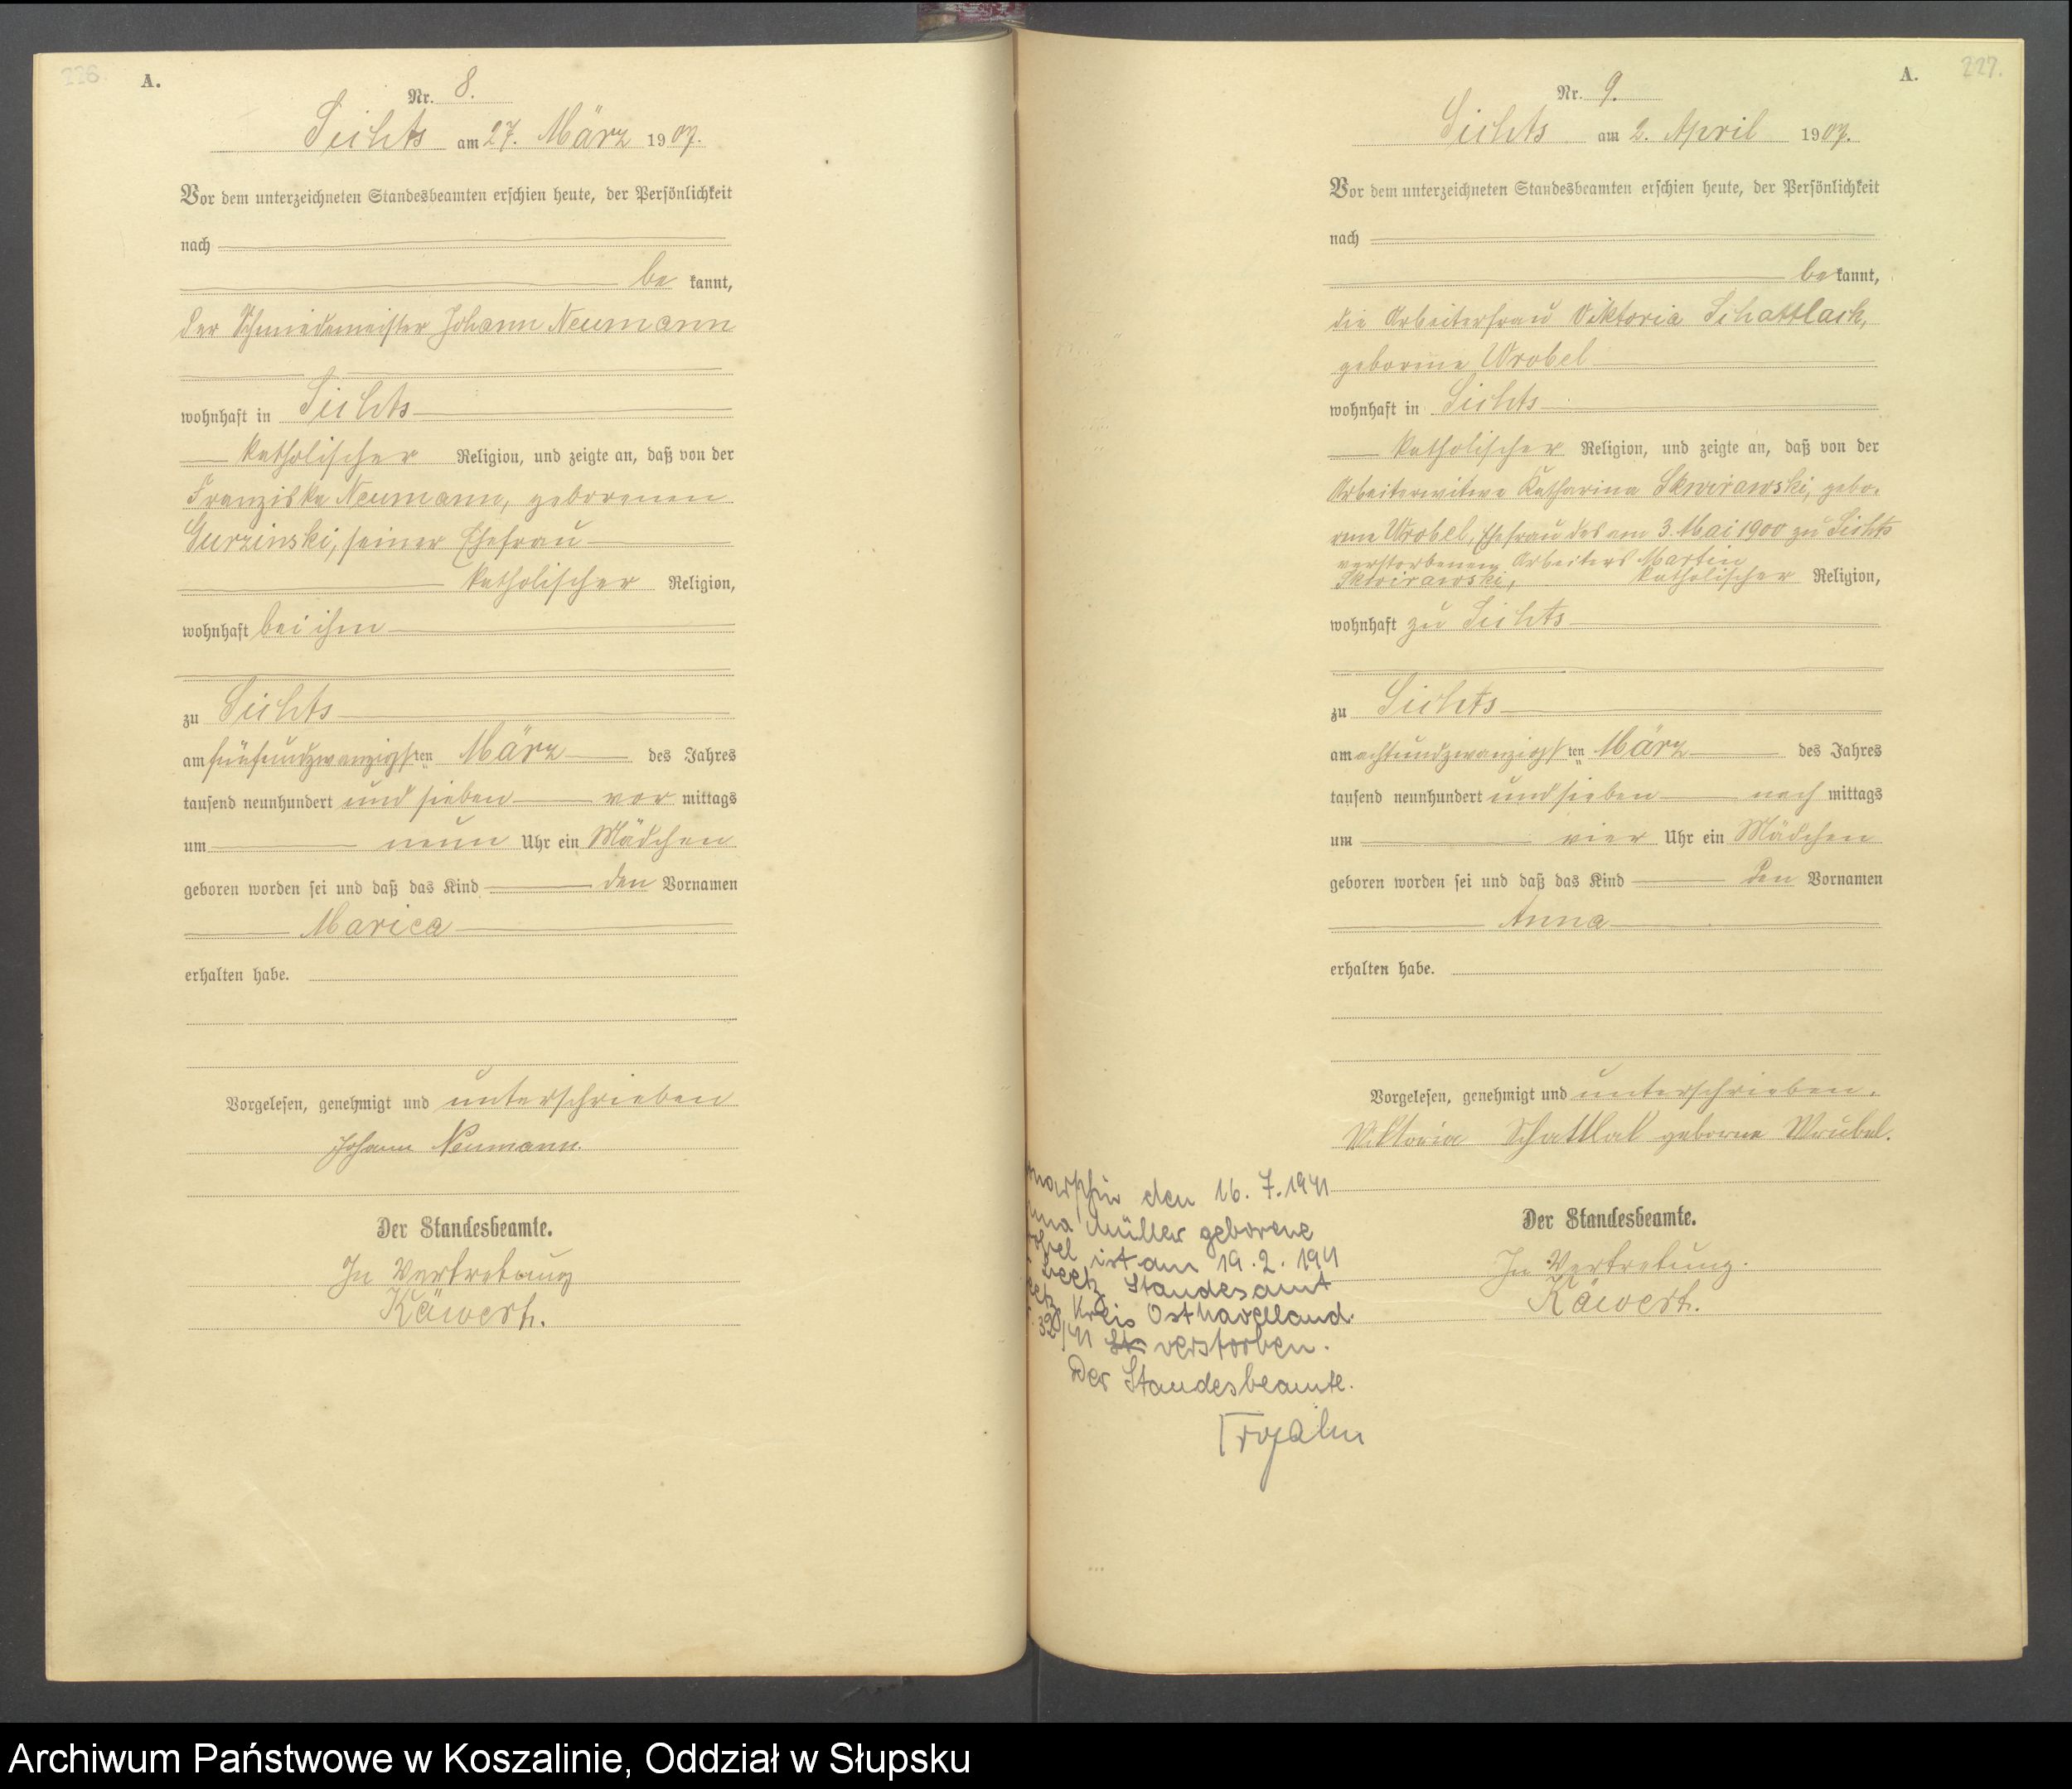 226
A.
Nr. 8.
Sichts am 27. März 1907.
Vor dem unterzeichneten Standesbeamten erschien heute, der Persönlichkeit
nach
be kannt,
der Schmiedemeister Johann Neumann
wohnhaft in Sichts
katholischer Religion, und zeigte an, daß von der
Franziska Neumann, geborenen
Gurzinski, seiner Ehefrau
katholischer Religion,
wohnhaft bei ihm
zu Sichts
am fünfundzwanzigsten März des Jahres
tausend neunhundert und sieben vor mittags
um neun Uhr ein Mädchen
geboren worden sei und daß das Kind den Vornamen
Marica
erhalten habe.
Vorgelesen, genehmigt und unterschrieben
Johann Neumann.
Der Standesbeamte.
In Vertretung
Käwert.
A.
227.
Nr. 9.
Sichts am 2. April 1907.
Vor dem unterzeichneten Standesbeamten erschien heute, der Persönlichkeit
nach
be kannt,
die Arbeiterfrau Viktoria Schattlach,
geborene Wrobel
wohnhaft in Sichts
katholischer Religion, und zeigte an, daß von der
Arbeiterwitwe Katharina Skwirawski, gebo-
rene Wrobel, Ehefrau des am 3. Mai 1900 zu Sichts
verstorbenen Arbeiters Martin
Skwirawski, katholischer Religion,
wohnhaft zu Sichts
zu Sichts
am achtundzwanzigsten März des Jahres
tausend neunhundert und sieben nach mittags
um vier Uhr ein Mädchen
geboren worden sei und daß das Kind den Vornamen
Anna
erhalten habe.
Vorgelesen, genehmigt und unterschrieben.
Viktoria Schattlak geborne Wrubel.
Der Standesbeamte.
In Vertretung.
Käwert.
den 16. 7. 1941
Müller geborene
ist am 19. 2. 1941
Beetz Standesamt
Kreis Osthavelland
verstorben.
Der Standesbeamte.
Archiwum Państwowe w Koszalinie, Oddział w Słupsku